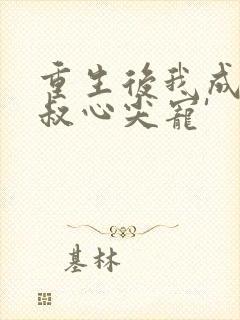 重生後我成
叔心尖寵
基林